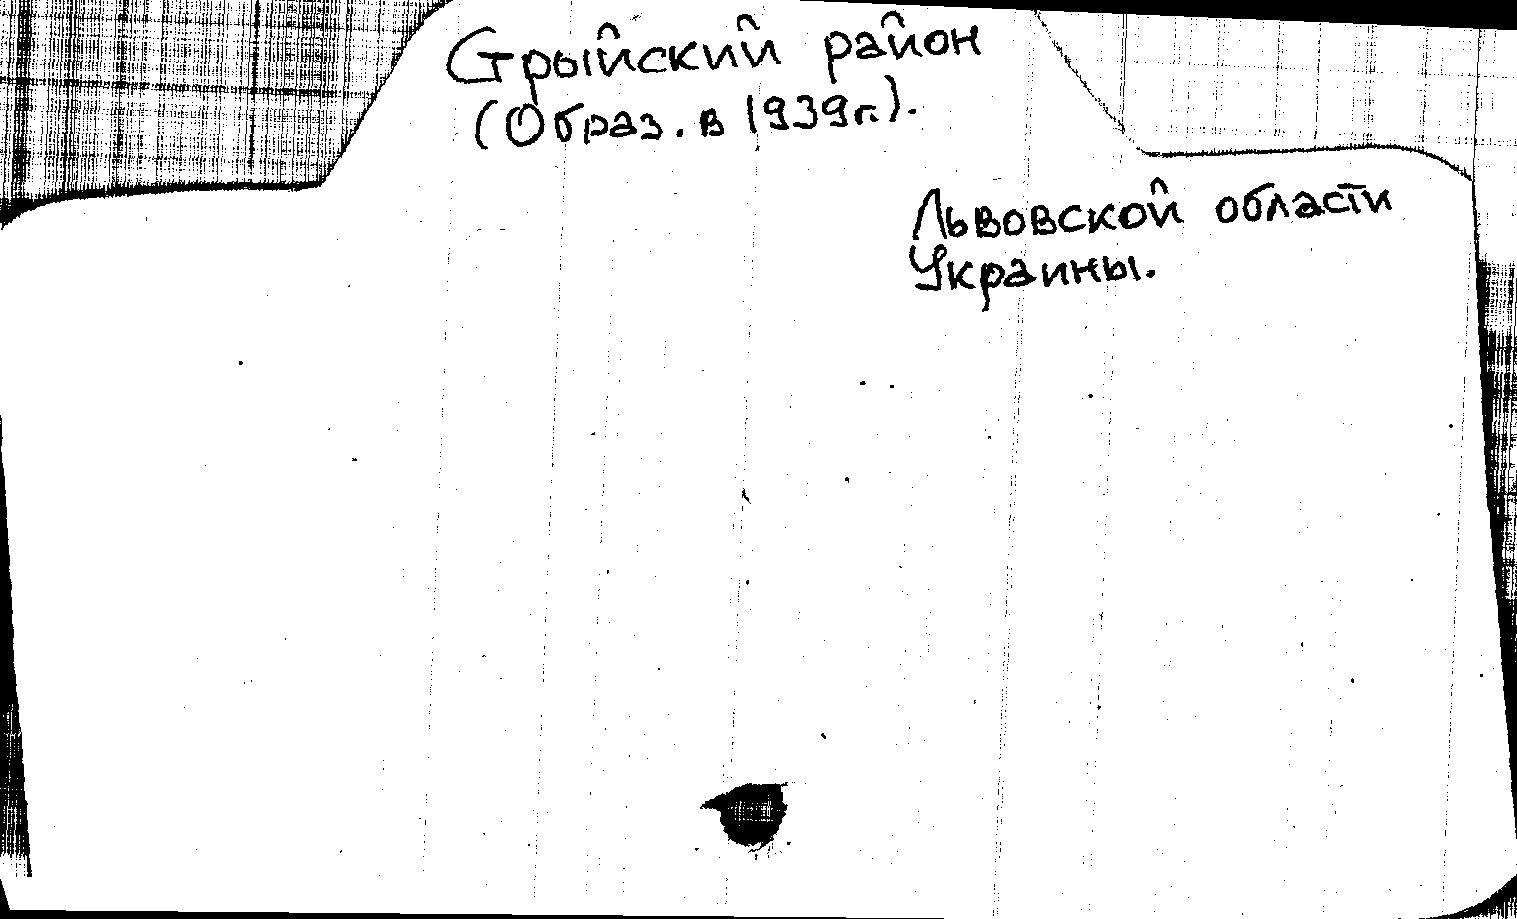 Стрыйский район
(Образ. в 1939г.).
Львовской области
Украины.